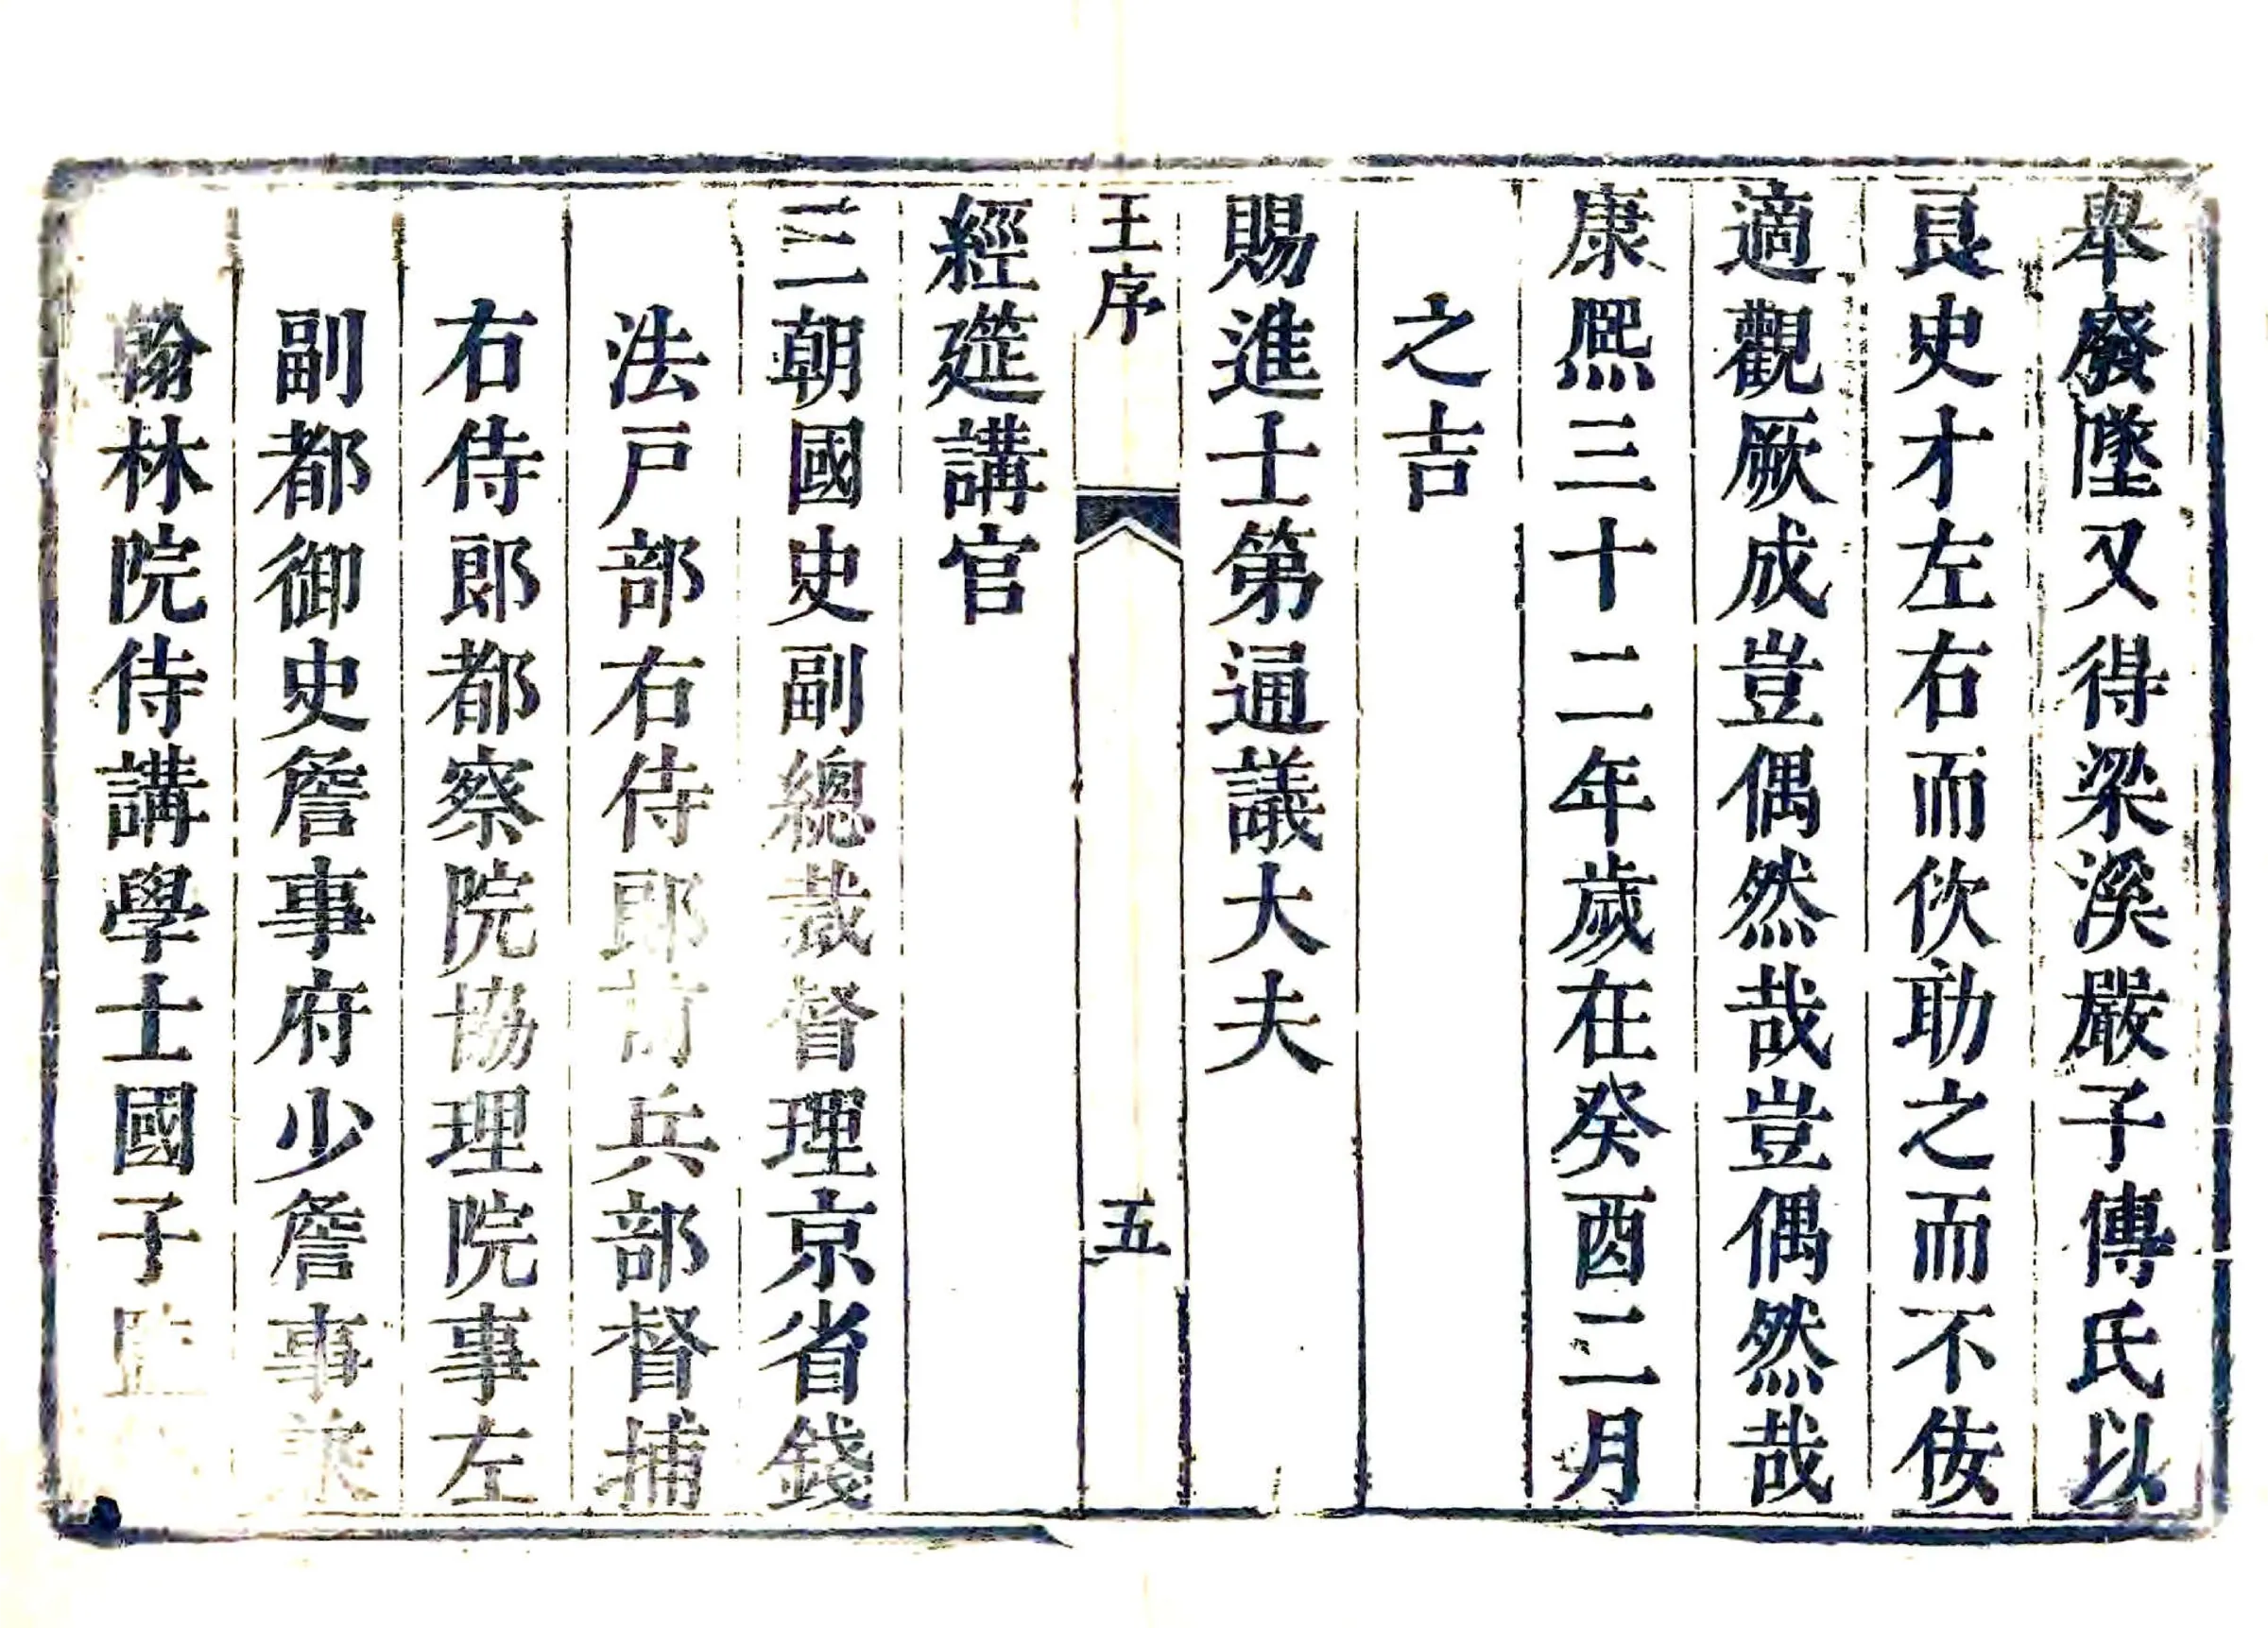 舉廢墜又得梁溪嚴子傳氏以
良史才左右而佽助之而不佞
適觀厥成豈偶然哉豈偶然哉
康熙三十二年歲在癸酉二月
之吉
賜進士第通議大夫
王序 五
經筵講官
三朝國史副總裁督理京省錢
法戸部右侍郎前兵部督捕
右侍郎都察院協理院事左
副都御史詹事府少詹事兼
翰林院侍講學士國子監